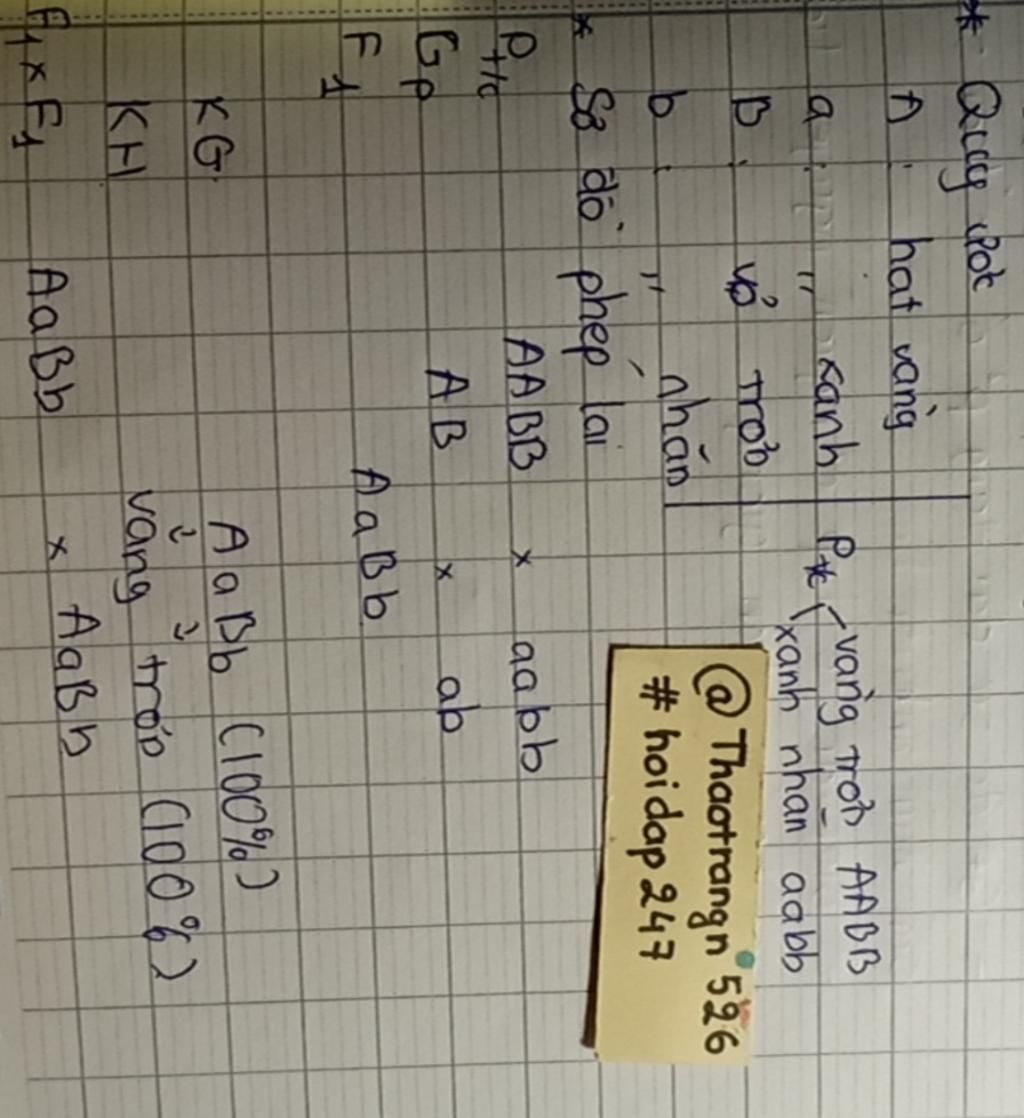 * Quy ước
A : hạt vàng
a : " xanh
B : vỏ trơn
b : " nhăn
Pt/c vàng trơn AABB
xanh nhăn aabb
@Thaotrangn526
# hoidap247
* Sơ đồ phép lai
Pt/c AABB x aabb
Gp AB x ab
F1 AaBb
KG AaBb (100%)
KH vàng trơn (100%)
F1 x F1 AaBb x AaBb